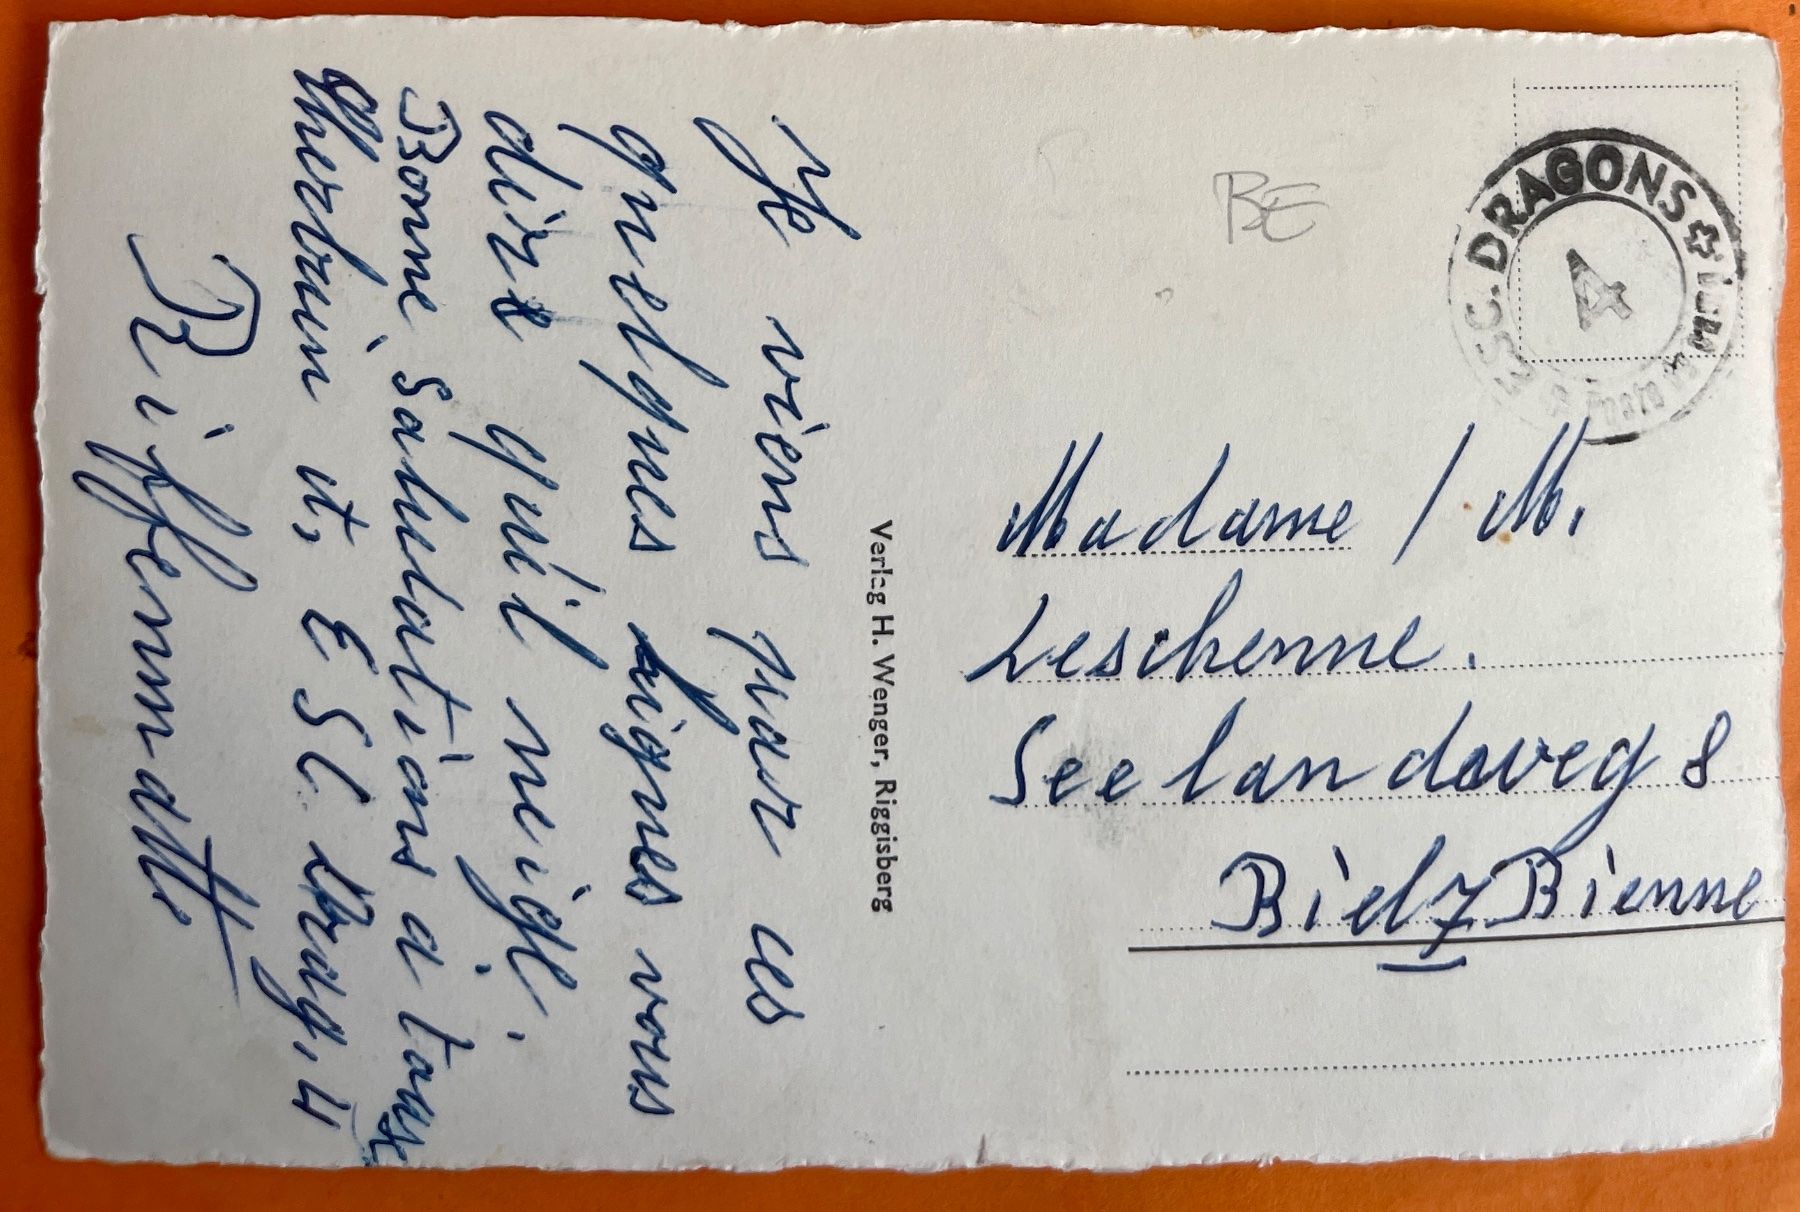 Je viens par ces
quelques lignes vous
dire quil neige.
Bonne Salutations a tous
it, ESC Drag, 4
Riffenmatt
Verlag H. Wenger, Riggisberg
BE
ESC. DRAGONS
4
Madame / M.
Leschenne.
Seelandweg 8
Biel 7 Bienne